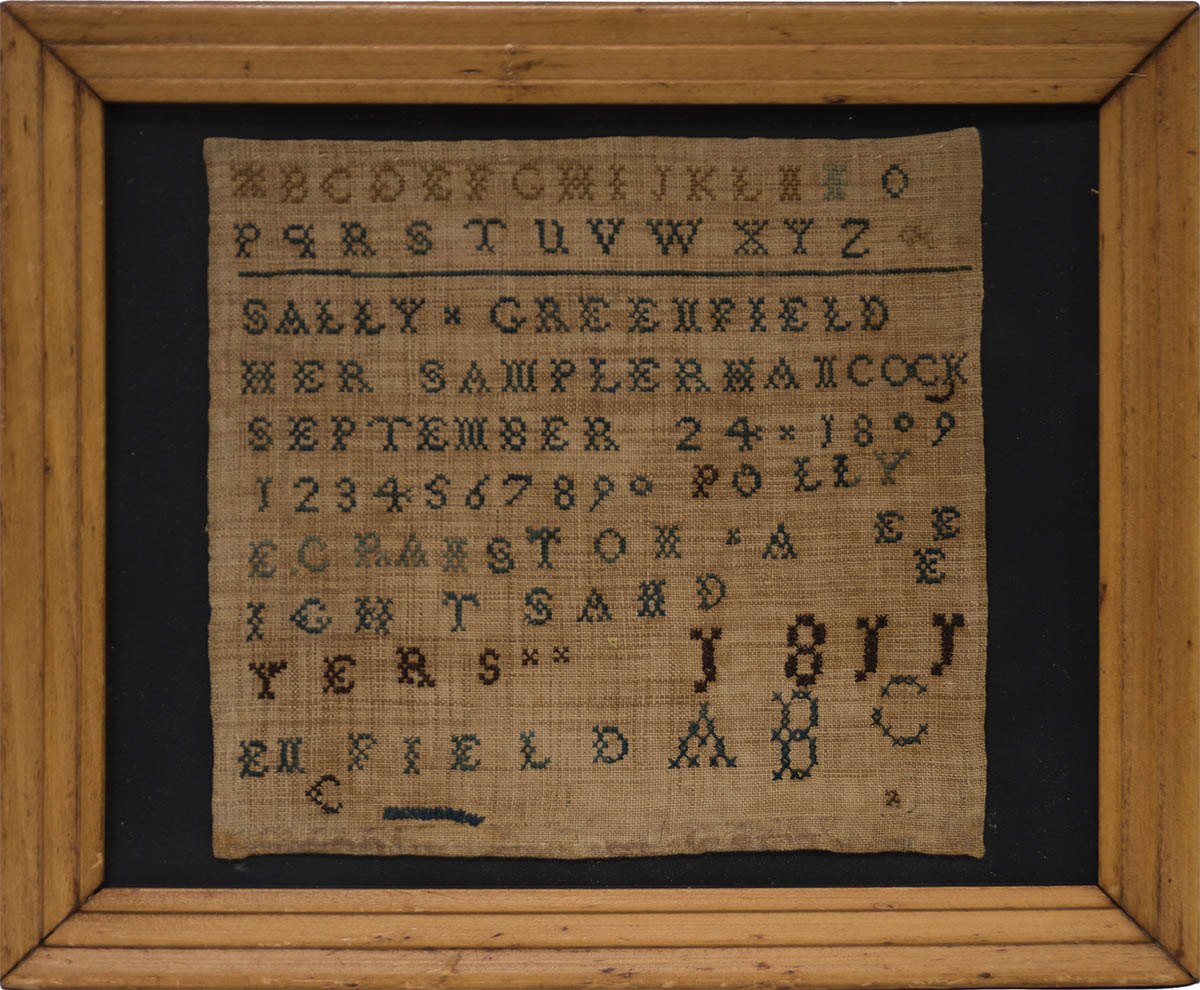 A B C D E F G H I J K L M N O
P Q R S T U V W X Y Z
SALLY × GREENFIELD
HER SAMPLER HANCOCK
SEPTEMBER 24 × 1809
1 2 3 4 5 6 7 8 9 0 POLLY
E CRANSTON × A E E
E
IGHT SAND
YERS × × 18JJ
ENFIELD A B C
C